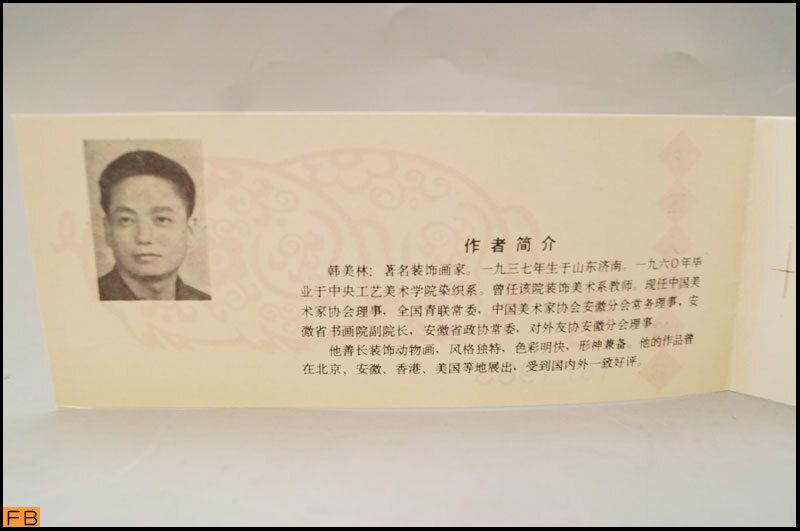 作者简介
韩美林：著名装饰画家。一九三七年生于山东济南。一九六〇年毕
业于中央工艺美术学院染织系。曾任该院装饰美术系教师。现任中国美
术家协会理事，全国青联常委，中国美术家协会安徽分会常务理事，安
徽省书画院副院长，安徽省政协常委，对外友协安徽分会理事。
他善长装饰动物画，风格独特，色彩明快，形神兼备。他的作品曾
在北京、安徽、香港、美国等地展出，受到国内外一致好评。
FB